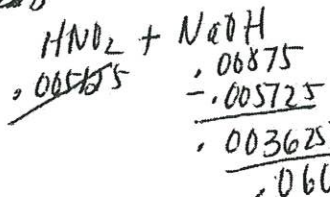 HNO₂ + NaOH
.005125 .00875
- .005125
.003625
.060